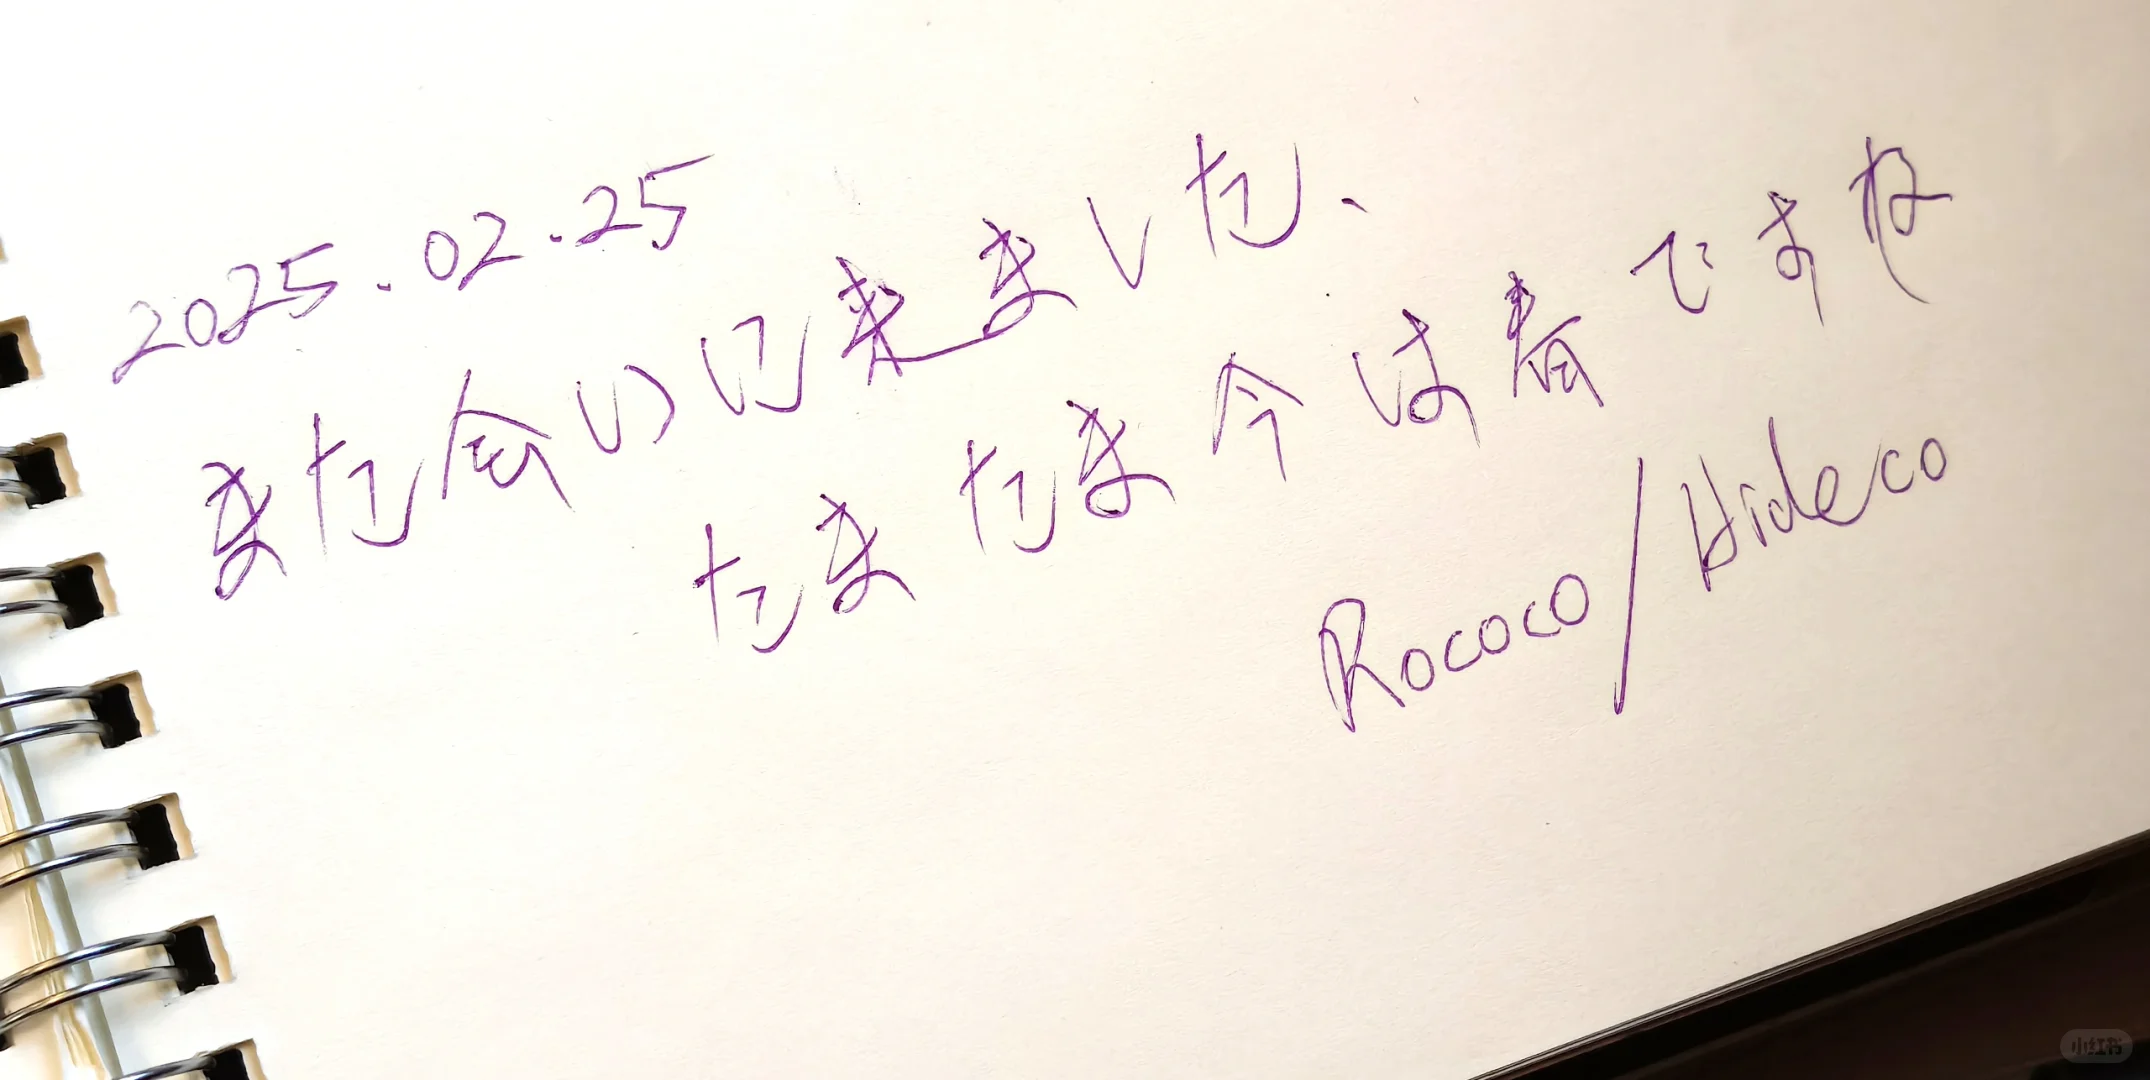 2025.02.25
また会いに来ました、
たまたま今は春ですね
Rococo/Hideco
小红书